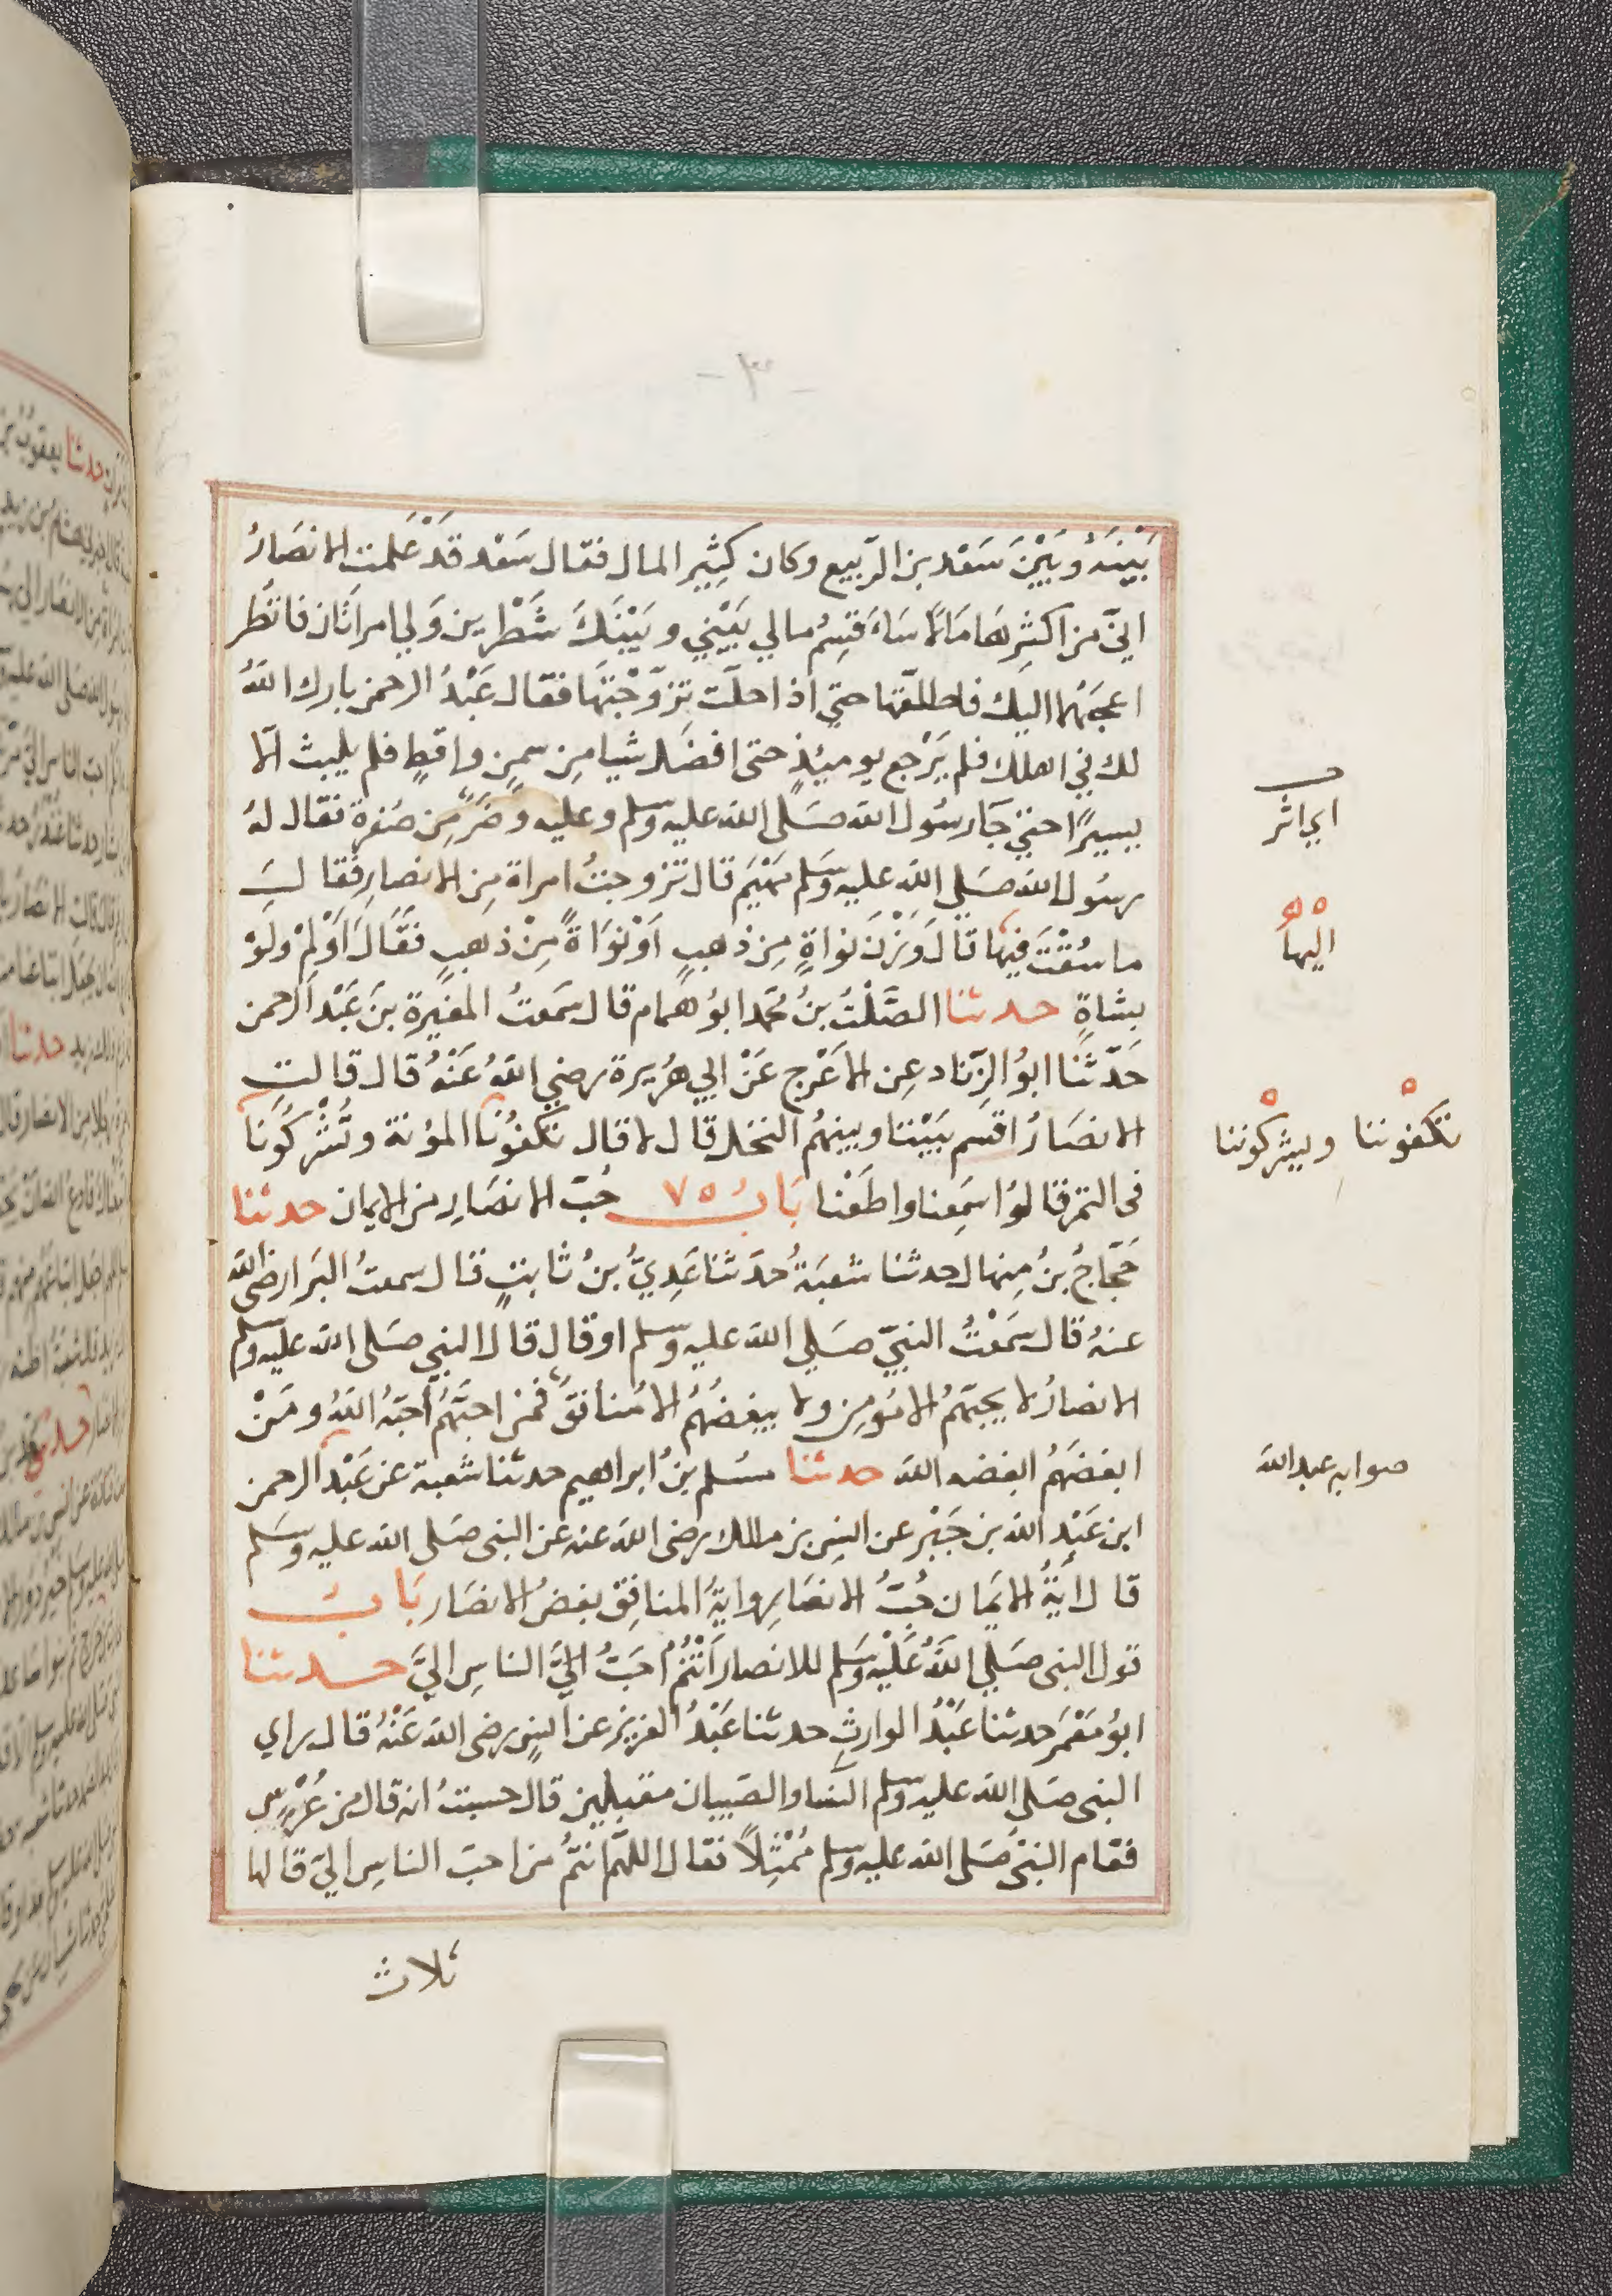 -٣-
بَيْنَهُ وبَيْنَ سَعْد بن الرّبيع وكان كثِير المال فقال سَعْد قَدْ عَلمت الانصَارُ
انيّ من اكثرِهَا مَالاً سَاَقسِمُ مالي بَيْنِي وبَيْنَكَ شَطْرين وَلي امراَتَان فانظر
اعجبَهُما اليك فاطلّقها حتي اذا حلّت تزوّجْتهَا فقال عَبْدُ الرحمن بارك اللهُ
لك في اهلك فلم يَرْجع يومئذٍ حتى افضَل شيا مِن سمنٍ واقطٍ فلم يلبث الّا
يسيرًا حتيّ جَآ رسُول الله صَلى الله عليه وسلم وعليه وضَرٌ مِن صُفرة فقال لهُ
رسُول الله صَلي الله عليه وسَلم مَهْيَم قال تزوجتُ امراة مِن الانصارِ فقالَ
ما سُقْتَ فيها قالَ وَزْنَ نواةٍ مِن ذهبٍ اَوْ نوَاةً مِنْ ذهبٍ فقَالَ اَوْلِمْ ولَوْ
بشاةٍ حدثنا الصَّلْتُ بنُ مُحَمد ابوُ همام قال سَمعتُ المغيرة بنَ عَبْد الرحمن
حَدّثَنَا ابوُ الزِّناد عِن الاعْرج عَنْ ابي هرُيرة رضي اللهُ عَنْهُ قال قالتِ
الانصَارُ اقسِم بَيْننا وبينهمُ النخل قال لا قال تكفوُنَا المؤنة وتُشْركُونَا
في التمر قالوُا سَمِعنا واطَعْنا بَابُ ٧٥ حُبّ الانصَارِ من الايمان حدثنا
حَجّاجُ بنُ مِنهال حدثنا شعبَةُ حدَثنا عَدِيُّ بنُ ثابتٍ قال سمعتُ البَرا رضى الله
عنهُ قال سَمعْتُ النبيّ صَلي الله عليه وسلم او قال قال النبي صَلى الله عليه وسلم
الانصارُ لا يحبّهمُ الا مُومِن ولا يبغضُهُم الا مُنافقٌ فمن احبَّهُم اَحبّهُ اللهُ ومَنْ
ابغضَهُم ابغضه الله حدثنا مسُلم بنُ ابراهيم حدثنا شعبة عن عَبْد الرحمن
ابن عَبْدِ الله بن جَبْر عن انسِ بن مالك رضى الله عنه عن النبى صَلى الله عليه وسَلم
قال اٰيَةُ الايمَان حُبُّ الانصَارِ واٰيةُ المنافِق بغضُ الانصَار بَابُ
قول النبى صَلي اللهُ عَليْه وسَلم للانصار اَنْتُمْ احَبُّ اليَّ الناسِ اليَّ حدثنا
ابوُ مَعْمَر حدثنا عَبْدُ الوارثِ حدثنا عَبْدُ العزيز عن انسٍ رضى الله عَنْهُ قال راي
النبى صَلى الله عليه وسلم النّسا والصَبيان مقبلين قال حسبتُ انه قال من عُرْسٍ
فقام النبىُّ صَلى الله عليه وسلم مُمْثِلاً فقال اللهمّ انتمُ من احبّ الناسِ اليّ قالها
ثلاث
اي اثر
اليها
تكفوننا ويشركوننا
صوابه عبد الله